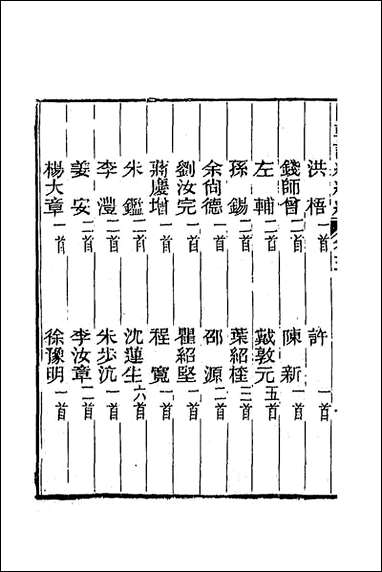 洪梧一首 許 一首
錢師曾一首 陳新一首
左輔二首 戴敦元五首
孫錫一首 葉紹楏三首
余尚德一首 邵源二首
劉汝完一首 瞿紹堅一首
蔣慶增一首 程寬一首
朱鑑二首 沈蓮生六首
李澧二首 朱步沆一首
姜安二首 李汝章二首
楊大章一首 徐豫明一首